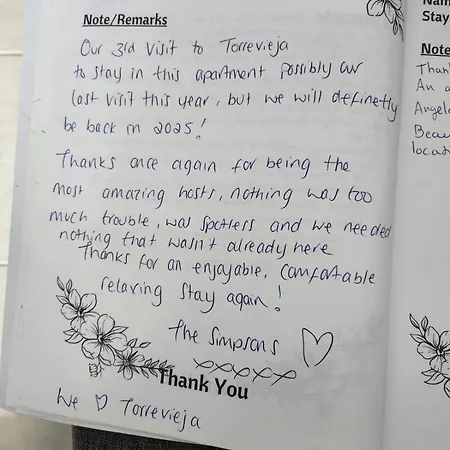 Note/Remarks
Our 3rd visit to Torrevieja
to stay in this apartment possibly our
last visit this year, but we will definetly
be back in 2025!
Thanks once again for being the
most amazing hosts, nothing was too
much trouble, was spotless and we needed
nothing that wasn't already here
Thanks for an enjoyable, comfortable
relaxing stay again!
The Simpsons ♡
xxxxx
Thank You
We ♡ Torrevieja
Nam
Stay
Note
Than
An a
Angel
Beau
locat